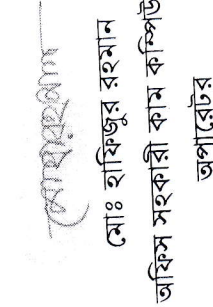 মোঃ হাফিজুর রহমান
অফিস সহকারী কাম কম্পিউ
অপারেটর